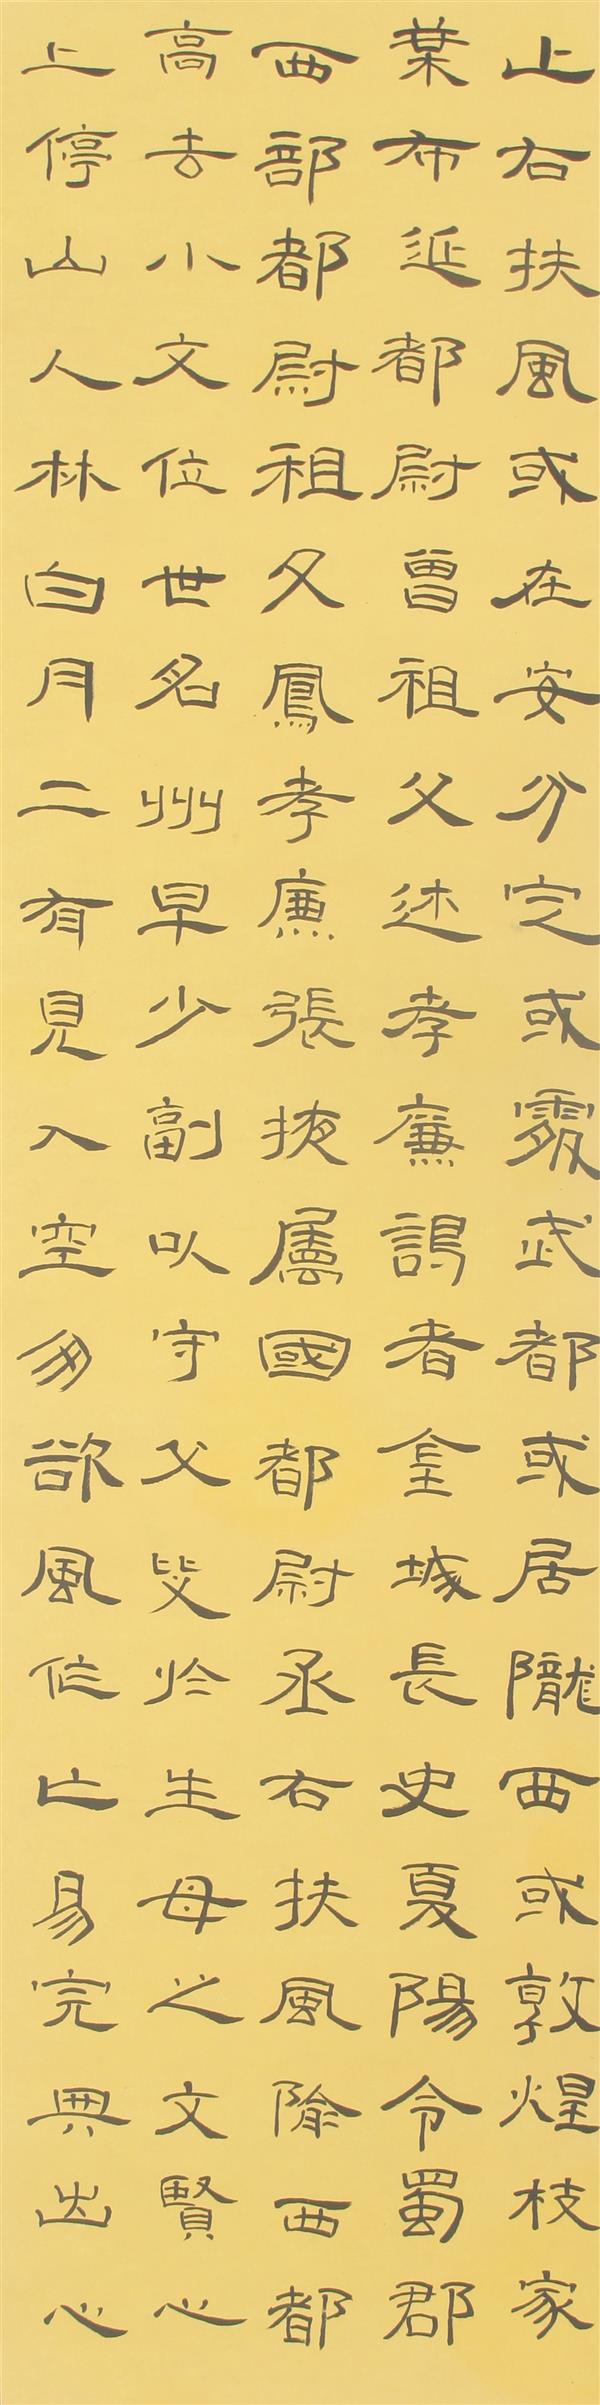 止右扶風或在安分定或處武都或居隴西或敦煌枝家
葉布延都尉曾祖父述孝廉謁者金城長史夏陽令蜀郡
西部都尉祖父鳳孝廉張掖屬國都尉丞右扶風隃西都
高去小文位世名州早少副以守父於生母之文賢心
上停山人林白月二有見入空欲風作亡易完典出心